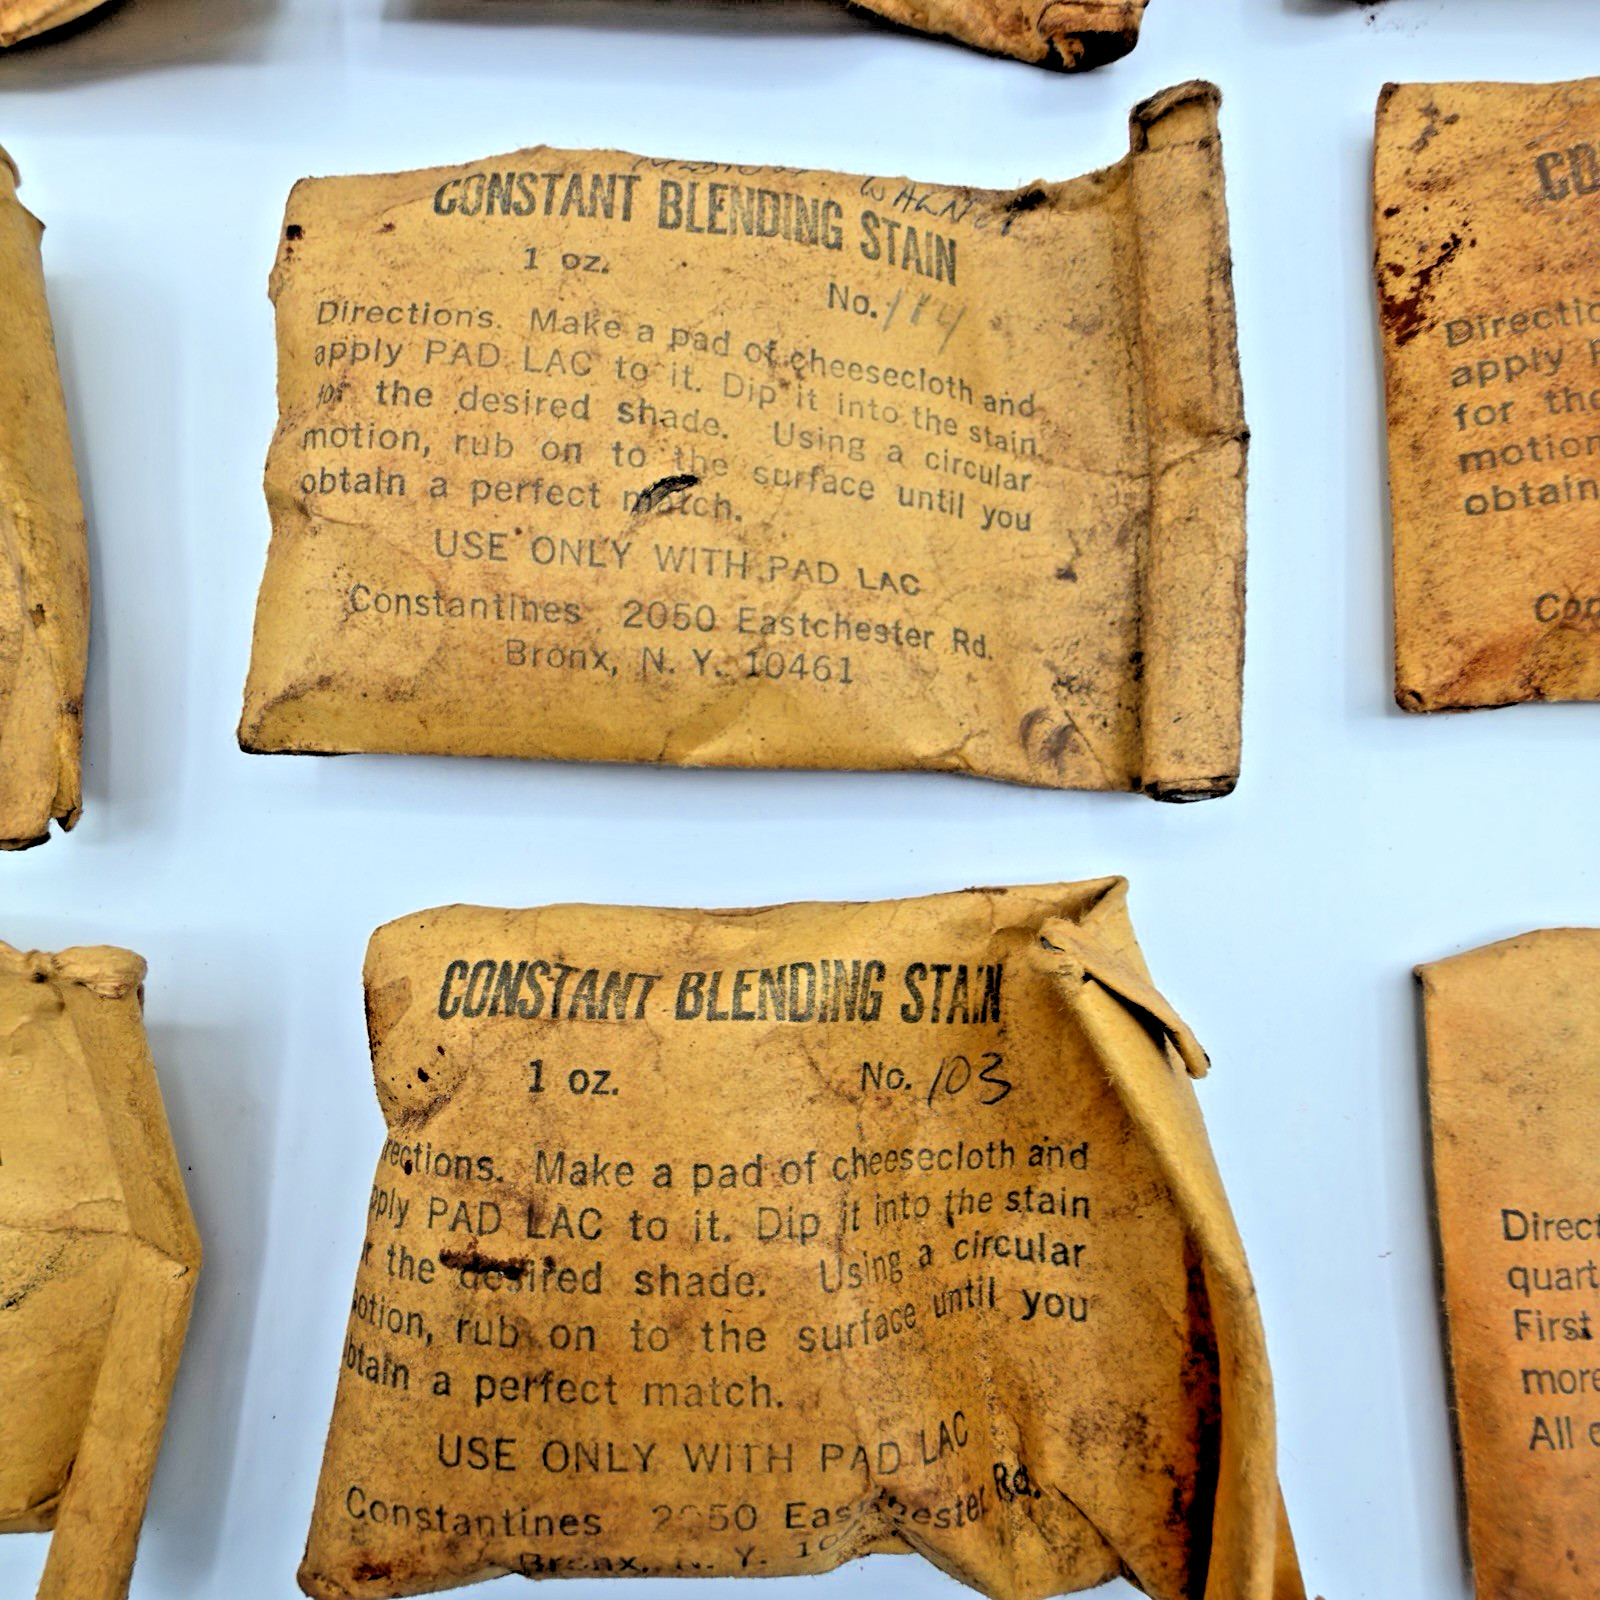 WALNUT
CONSTANT BLENDING STAIN
1 oz.
No. 114
Directions. Make a pad of cheesecloth and
apply PAD LAC to it. Dip it into the stain
for the desired shade. Using a circular
motion, rub on to the surface until you
obtain a perfect match.
USE ONLY WITH PAD LAC
Constantines 2050 Eastchester Rd.
Bronx, N. Y. 10461
CO
Directio
apply P
for the
motion
obtain
Con
CONSTANT BLENDING STAIN
1 oz. No. 103
rections. Make a pad of cheesecloth and
pply PAD LAC to it. Dip it into the stain
r the desired shade. Using a circular
otion, rub on to the surface until you
btain a perfect match.
USE ONLY WITH PAD LAC
Constantines 2050 Eastchester Rd.
Bronx, N. Y. 10
Direct
quart
First
more
All